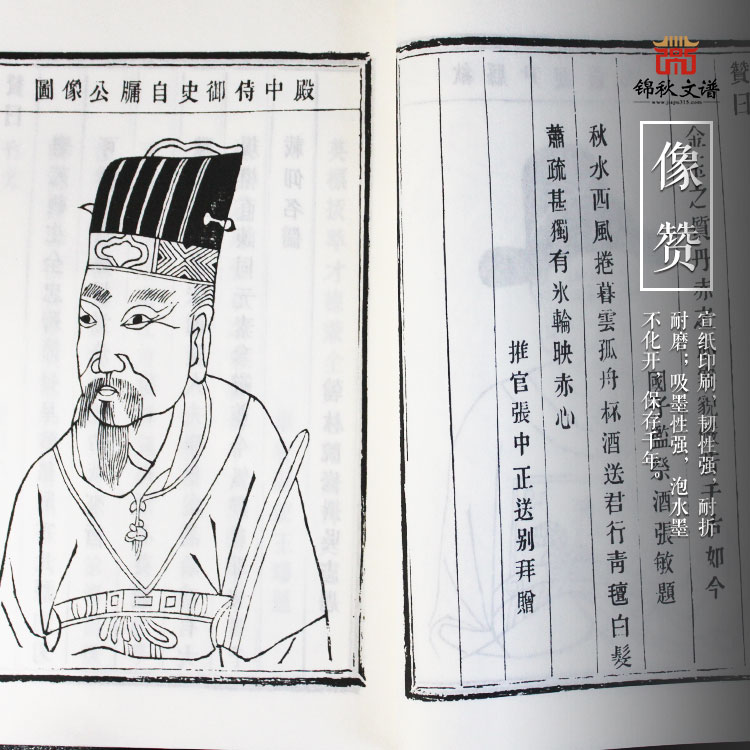 锦秋文谱
www.jiapu315.com
像赞
宣纸印刷 韧性强，耐折
耐磨；吸墨性强，泡水墨
不化开 保存千年。
贊曰
金玉之質丹赤 貌 千古如今
國子監祭酒張敏題
秋水西風捲暮雲孤舟杯酒送君行青氊白髮
蕭疏甚獨有氷輪映赤心
推官張中正送别拜贈
殿中侍御史自牖公像圖